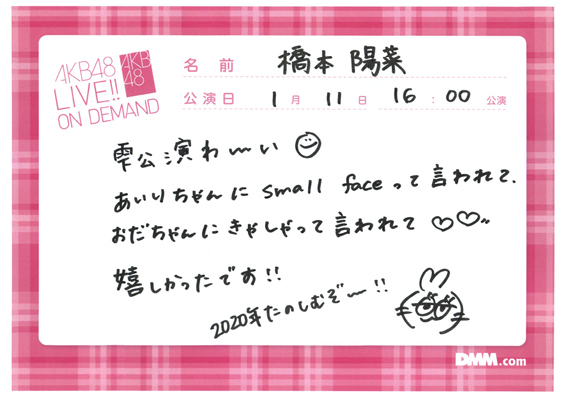 AKB48
LIVE!!
ON DEMAND
AKB
48
名前 橋本 陽菜
公演日 1月 11日 16:00 公演
雫公演わーい
あいりちゃんに small faceって言われて、
おだちゃんにきゃしゃって言われて♡♡〜
嬉しかったです!!
2020年たのしむぞー!!
DMM.com